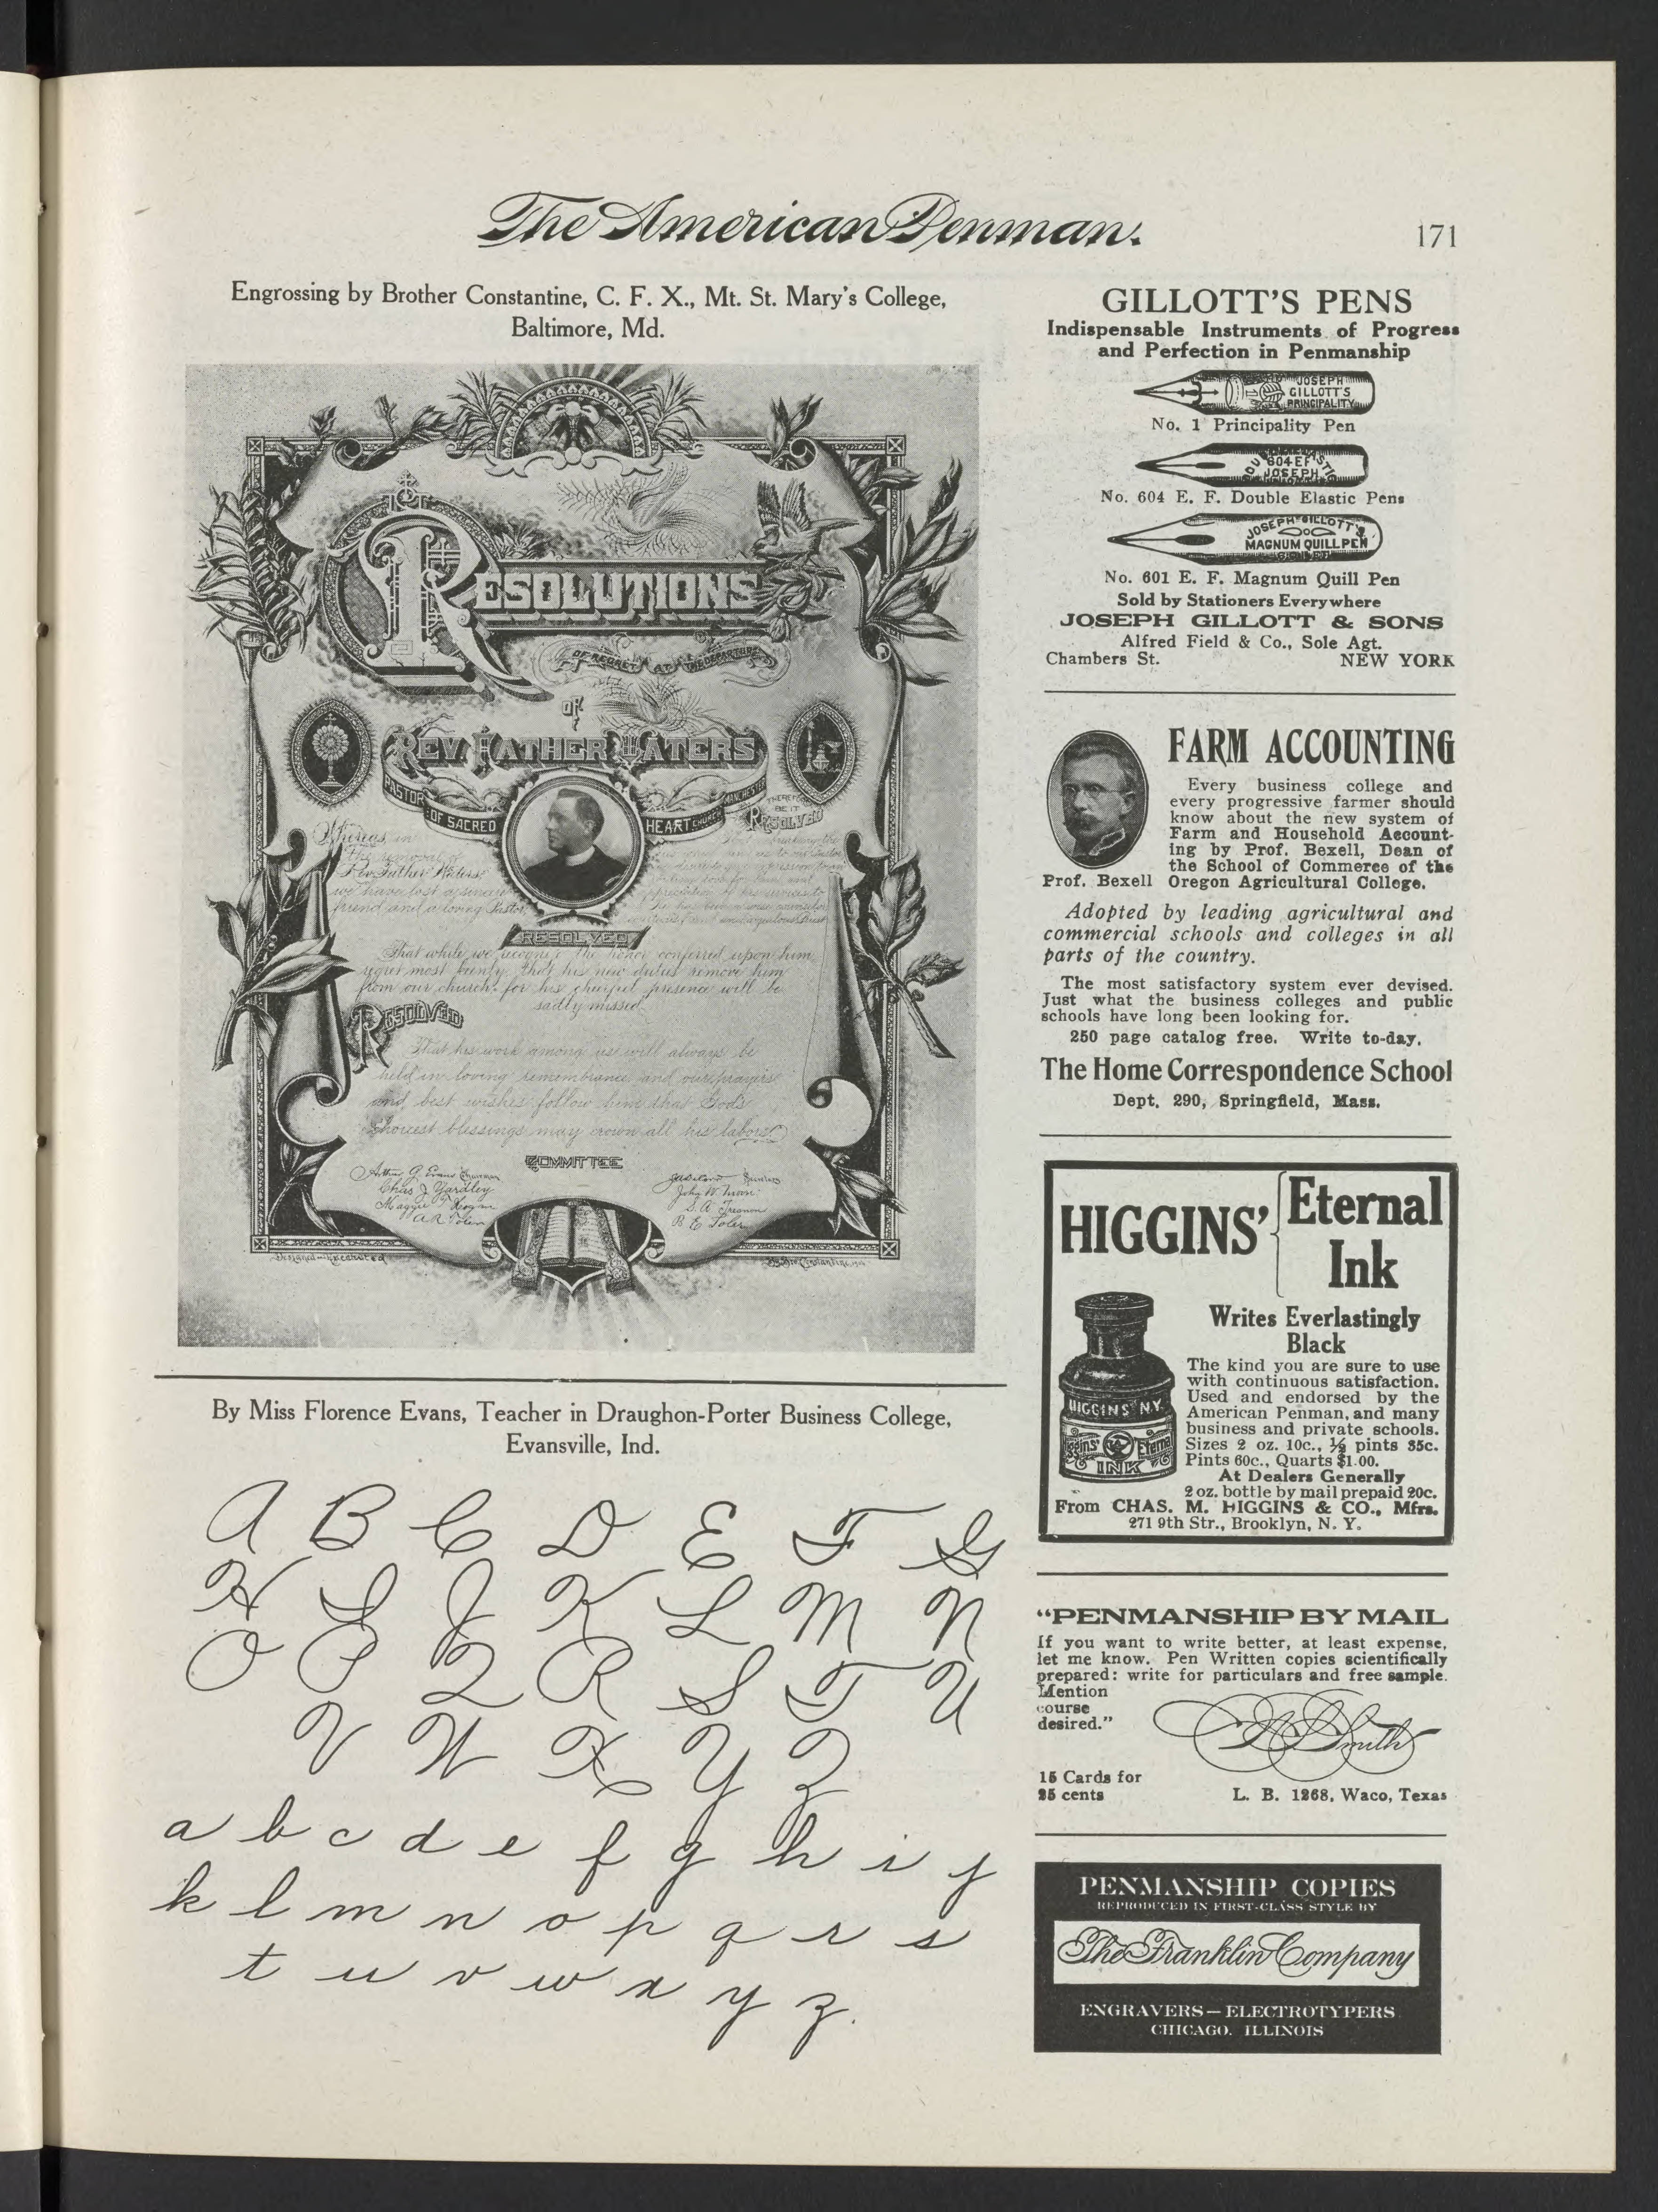 The American Penman.
171
Engrossing by Brother Constantine, C. F. X., Mt. St. Mary's College,
Baltimore, Md.
RESOLUTIONS
OF REGRET AT THE DEPARTURE
OF
REV. FATHER WATERS
PASTOR OF SACRED HEART CHURCH MANCHESTER
Whereas, in
the removal of
Rev. Father Waters
we have lost a sincere
friend and a loving Pastor,
THEREFORE
BE IT
RESOLVED
RESOLVED
That while we recognize the honor conferred upon him,
regret most keenly that his new duties remove him
from our church, for his cheerful presence will be
sadly missed.
RESOLVED
That his work among us will always be
held in loving remembrance and our prayers
and best wishes follow him that God's
choicest blessings may crown all his labors.
COMMITTEE
Arthur G. Evans Chairman
Chas J. Yardley
Maggie
A R Toler
John W.
S. A.
B E Toler
Designed & Executed
By Bro Constantine
By Miss Florence Evans, Teacher in Draughon-Porter Business College,
Evansville, Ind.
A B C D E F G
H I J K L M N
O P Q R S T U
V W X Y Z
a b c d e f g h i j
k l m n o p q r s
t u v w x y z.
GILLOTT'S PENS
Indispensable Instruments of Progress
and Perfection in Penmanship
JOSEPH
GILLOTT'S
PRINCIPALITY
No. 1 Principality Pen
604 EF
JOSEPH
No. 604 E. F. Double Elastic Pens
JOSEPH GILLOTT'S
MAGNUM QUILL PEN
No. 601 E. F. Magnum Quill Pen
Sold by Stationers Everywhere
JOSEPH GILLOTT & SONS
Alfred Field & Co., Sole Agt.
Chambers St. NEW YORK
FARM ACCOUNTING
Every business college and
every progressive farmer should
know about the new system of
Farm and Household Account-
ing by Prof. Bexell, Dean of
the School of Commerce of the
Prof. Bexell Oregon Agricultural College.
Adopted by leading agricultural and
commercial schools and colleges in all
parts of the country.
The most satisfactory system ever devised.
Just what the business colleges and public
schools have long been looking for.
250 page catalog free. Write to-day.
The Home Correspondence School
Dept. 290, Springfield, Mass.
HIGGINS' Eternal
Ink
Writes Everlastingly
Black
The kind you are sure to use
with continuous satisfaction.
Used and endorsed by the
American Penman, and many
business and private schools.
Sizes 2 oz. 10c., ½ pints 35c.
Pints 60c., Quarts $1.00.
At Dealers Generally
2 oz. bottle by mail prepaid 20c.
From CHAS. M. HIGGINS & CO., Mfrs.
271 9th Str., Brooklyn, N. Y.
HIGGINS' N.Y.
Higgins' Eternal
INK
"PENMANSHIP BY MAIL
If you want to write better, at least expense,
let me know. Pen Written copies scientifically
prepared: write for particulars and free sample.
Mention
course
desired."
Smith
15 Cards for
25 cents
L. B. 1268, Waco, Texas
PENMANSHIP COPIES
REPRODUCED IN FIRST-CLASS STYLE BY
The Franklin Company
ENGRAVERS — ELECTROTYPERS
CHICAGO. ILLINOIS